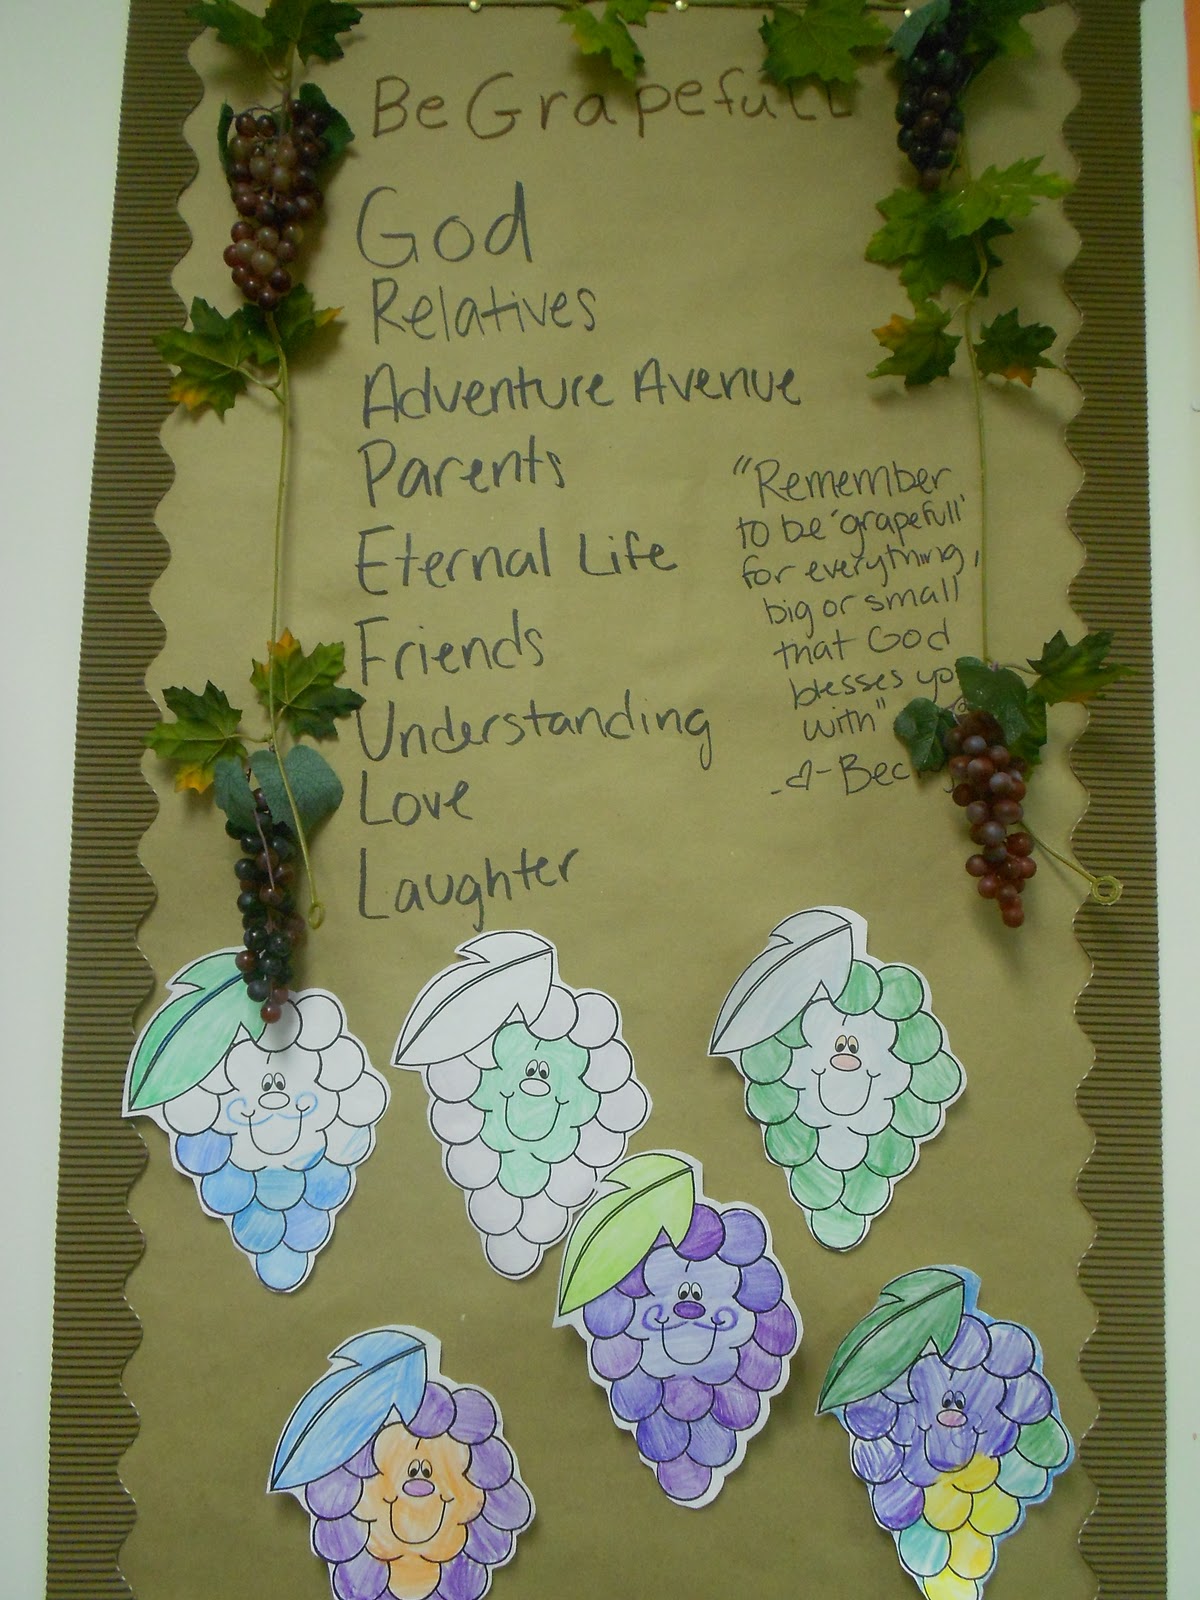 Be Grapefull
God
Relatives
Adventure Avenue
Parents
Eternal Life
Friends
Understanding
Love
Laughter
"Remember
to be 'grapefull'
for everything,
big or small
that God
blesses
with"